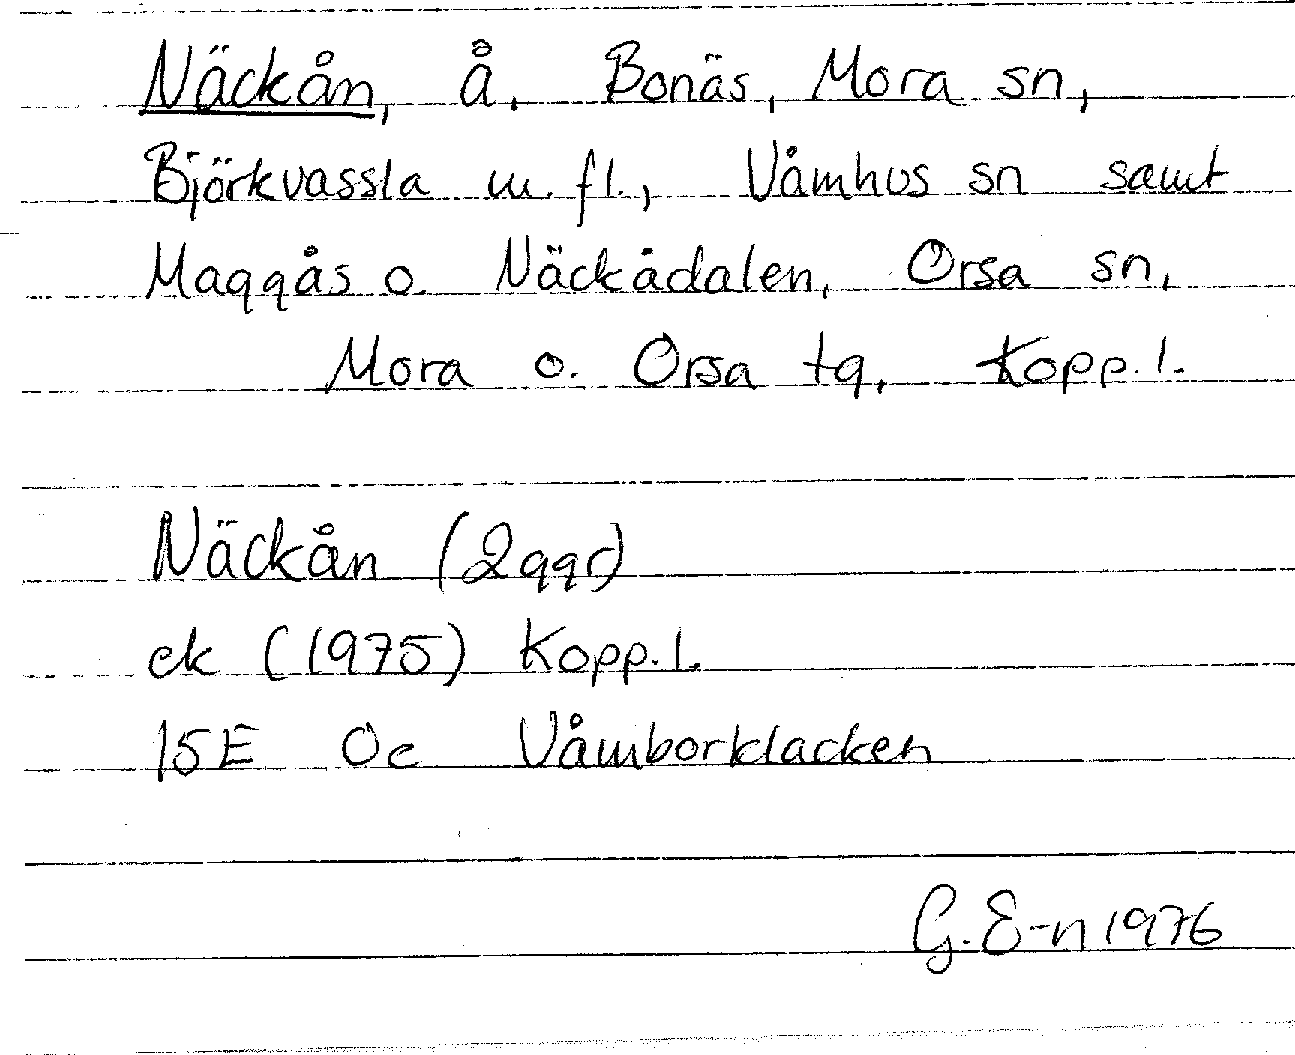 Näckån, å, Bonäs, Mora sn,
Björkvassla m. fl., Våmhus sn samt
Maggås o. Näckådalen, Orsa sn,
Mora o. Orsa tg, Kopp. l.
Näckån (2ggr)
ek (1975) Kopp. l.
15E 0c Våmborklacken
G. E-n 1976